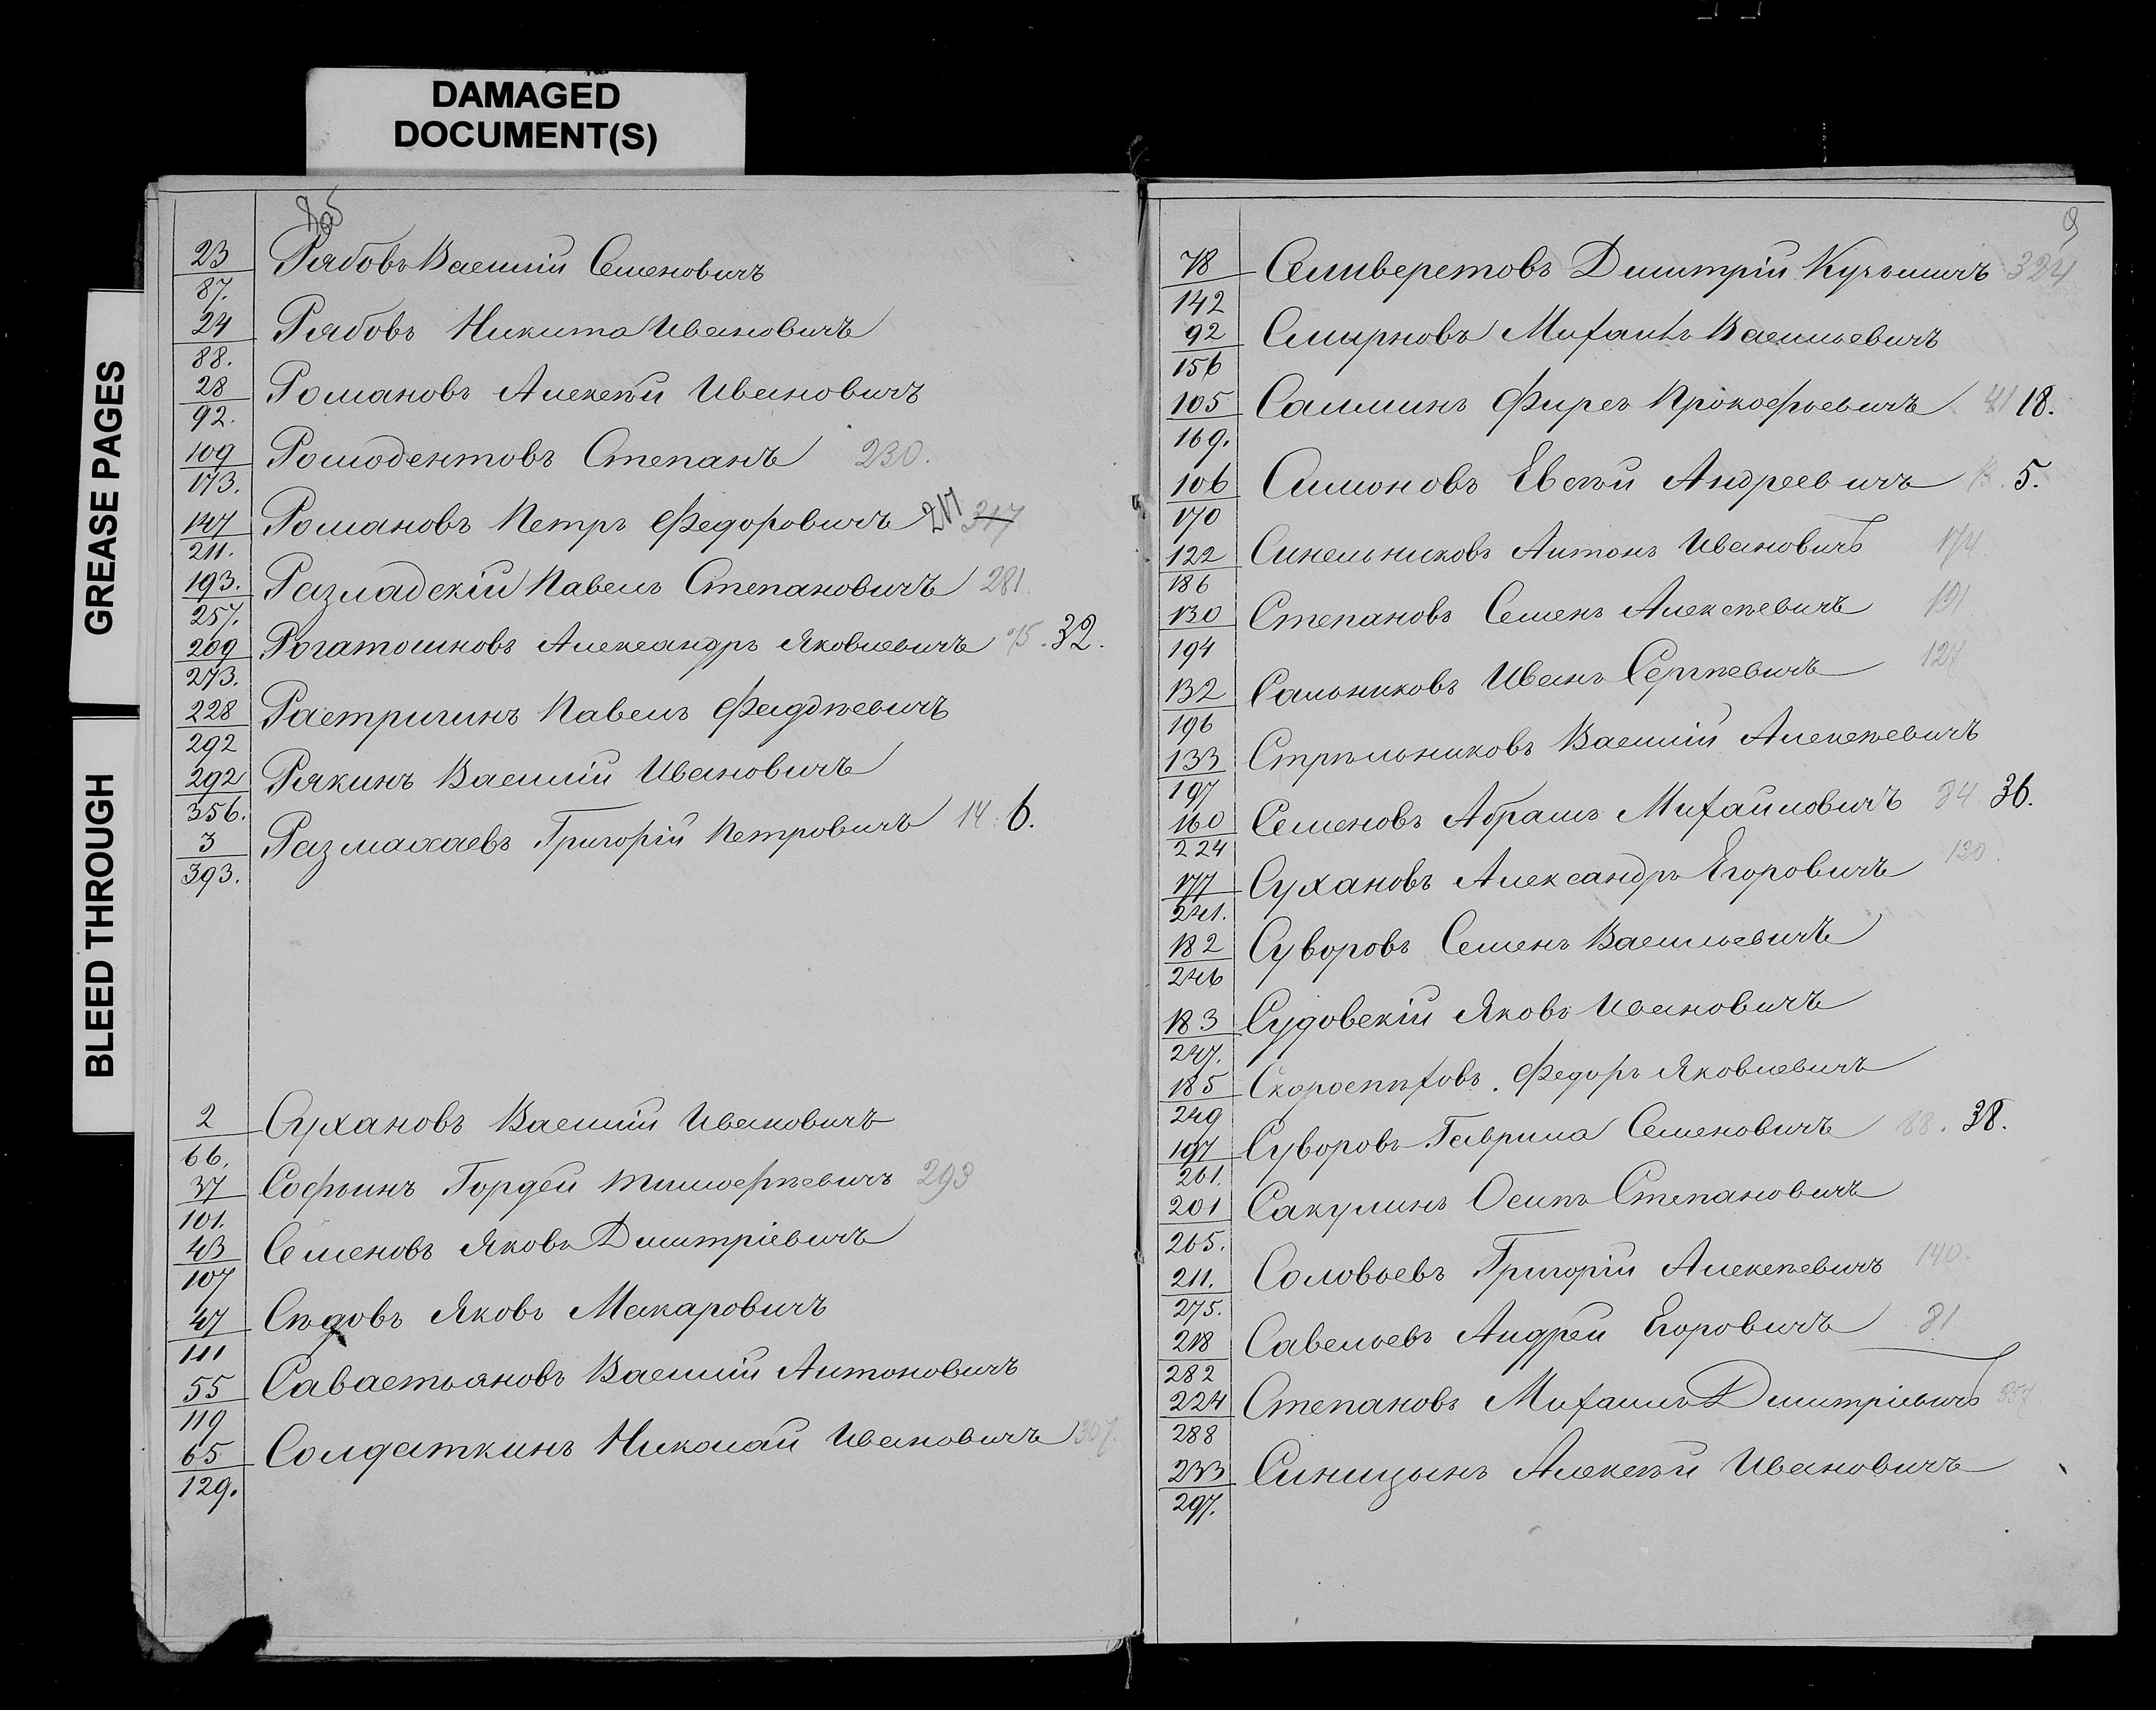 DAMAGED
DOCUMENT(S)
GREASE PAGES
BLEED THROUGH
23
87. Рябовъ Василій Семеновичъ
24
88. Рябовъ Никита Ивановичъ
28
92. Романовъ Алексѣй Ивановичъ
109
173. Ромодентовъ Степанъ 230.
147
211. Романовъ Петръ Федоровичъ 217 317
193.
257. Разладскій Павелъ Степановичъ 281
209
273. Рогатошновъ Александръ Яковлевичъ 75. 32.
228
292 Растригинъ Павелъ Фаддѣевичъ
292
356. Рякинъ Василій Ивановичъ
3
393. Размахаевъ Григорій Петровичъ 14. 6.
2
66. Сухановъ Василій Ивановичъ
37
101. Софьинъ Гордѣй Тимоѳѣевичъ 293
43
107 Семеновъ Яковъ Дмитріевичъ
47
111 Сѣдовъ Яковъ Макаровичъ
55
119 Савастьяновъ Василій Антоновичъ
65
129. Солдаткинъ Николай Ивановичъ 307.
9
78
142 Селиверстовъ Дмитрій Кузьмичъ 324
92
156 Смирновъ Михаилъ Васильевичъ
105
169. Салминъ Фирсъ Прокофьевичъ 41 18.
106
170 Симоновъ Евсѣй Андреевичъ 5.
122
186 Синельниковъ Антонъ Ивановичъ 174.
130
194 Степановъ Семенъ Алексѣевичъ 191
132
196 Сальниковъ Иванъ Сергѣевичъ 127
133
197 Стрѣльниковъ Василій Алексѣевичъ
160
224 Семеновъ Абрамъ Михайловичъ 84 36.
177
241. Сухановъ Александръ Егоровичъ 130.
182
246 Суворовъ Семенъ Васильевичъ
183
247. Судовскій Яковъ Ивановичъ
185
249 Скороспѣховъ. Федоръ Яковлевичъ
197
261. Суворовъ Гаврила Семеновичъ 88. 38.
201
265. Сакулинъ Осипъ Степановичъ
211.
275. Соловьевъ Григорій Алексѣевичъ 140.
218
282 Савельевъ Андрей Егоровичъ 81
224
288 Степановъ Михаилъ Дмитріевичъ 357
233
297. Синицынъ Алексѣй Ивановичъ